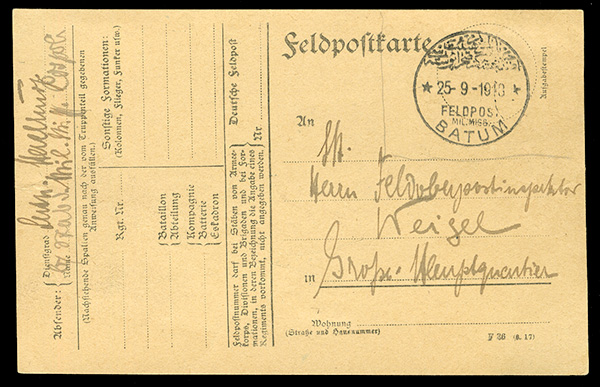 Feldpostkarte
Aufgabestempel
25-9-1918
FELDPOST
MIL.MISS.
BATUM
An
Herrn Feldoberpostinspektor
Weigel
in Großes Hauptquartier
Wohnung
(Straße und Hausnummer)
F 26 (6. 17)
Absender:
Dienstgrad
Name
Mil. Miss.
(Nachstehende Spalten genau nach der vom Truppenteil gegebenen
Anweisung ausfüllen.)
Sonstige Formationen:
(Kolonnen, Flieger, Funker usw.)
Rgt. Nr.
Bataillon
Abteilung
Kompagnie
Batterie
Eskadron
Deutsche Feldpost
Nr
Feldpostnummer darf bei Stäben vom Armee-
korps, Divisionen und Brigaden und bei For-
mationen, in deren Bezeichnung die Angabe eines
Regiments vorkommt, nicht angegeben werden.